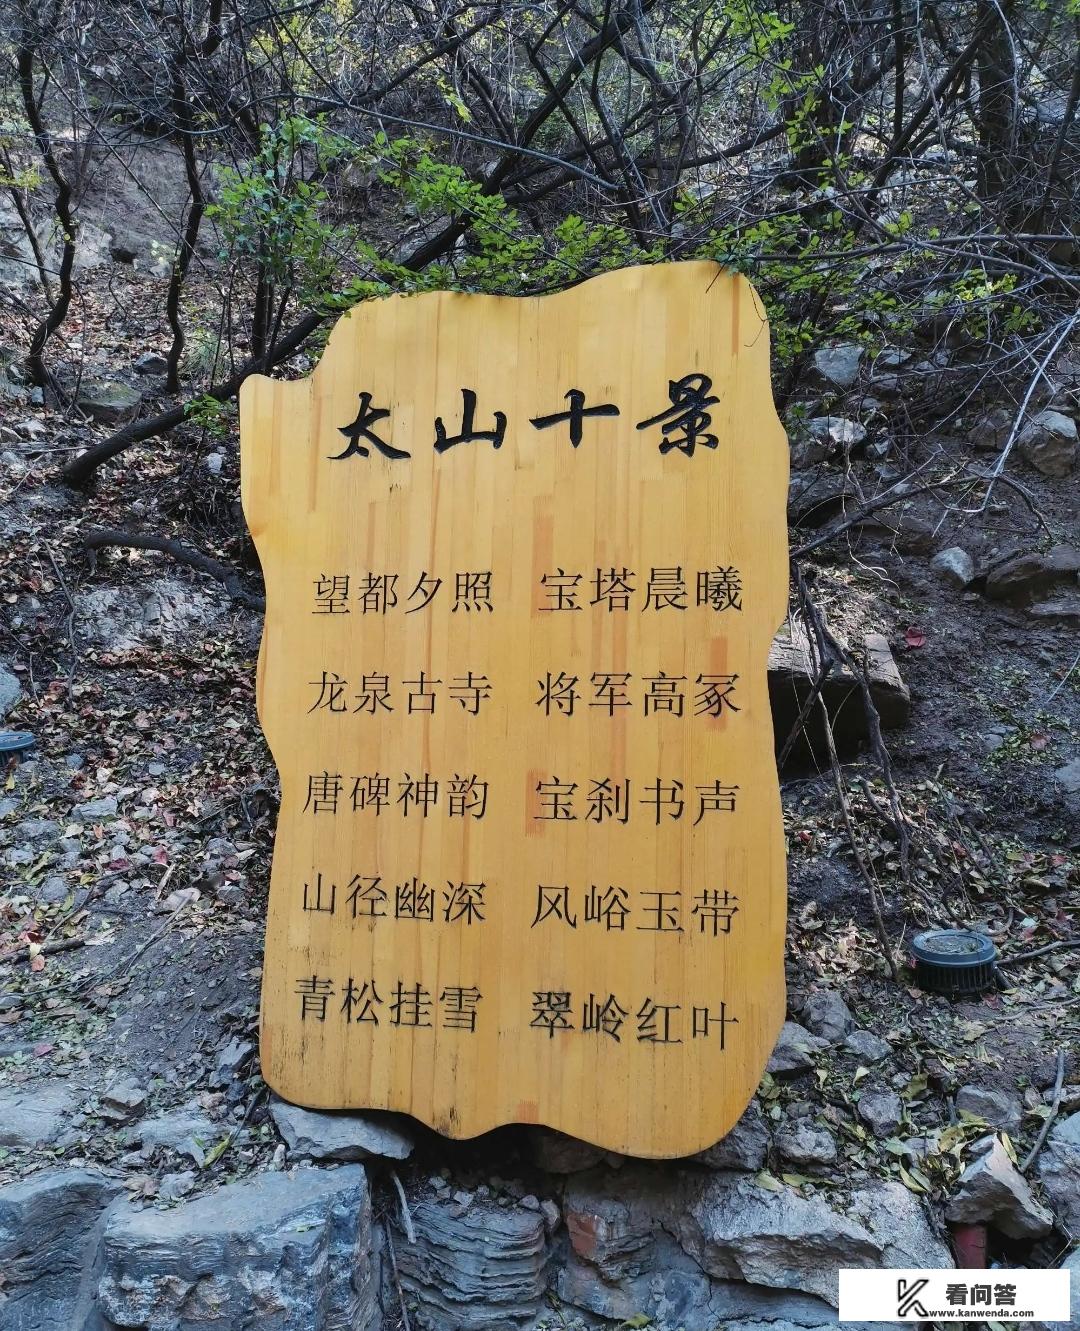 太山十景
望都夕照 宝塔晨曦
龙泉古寺 将军高冢
唐碑神韵 宝刹书声
山径幽深 风峪玉带
青松挂雪 翠岭红叶
K 看问答
www.kanwenda.com